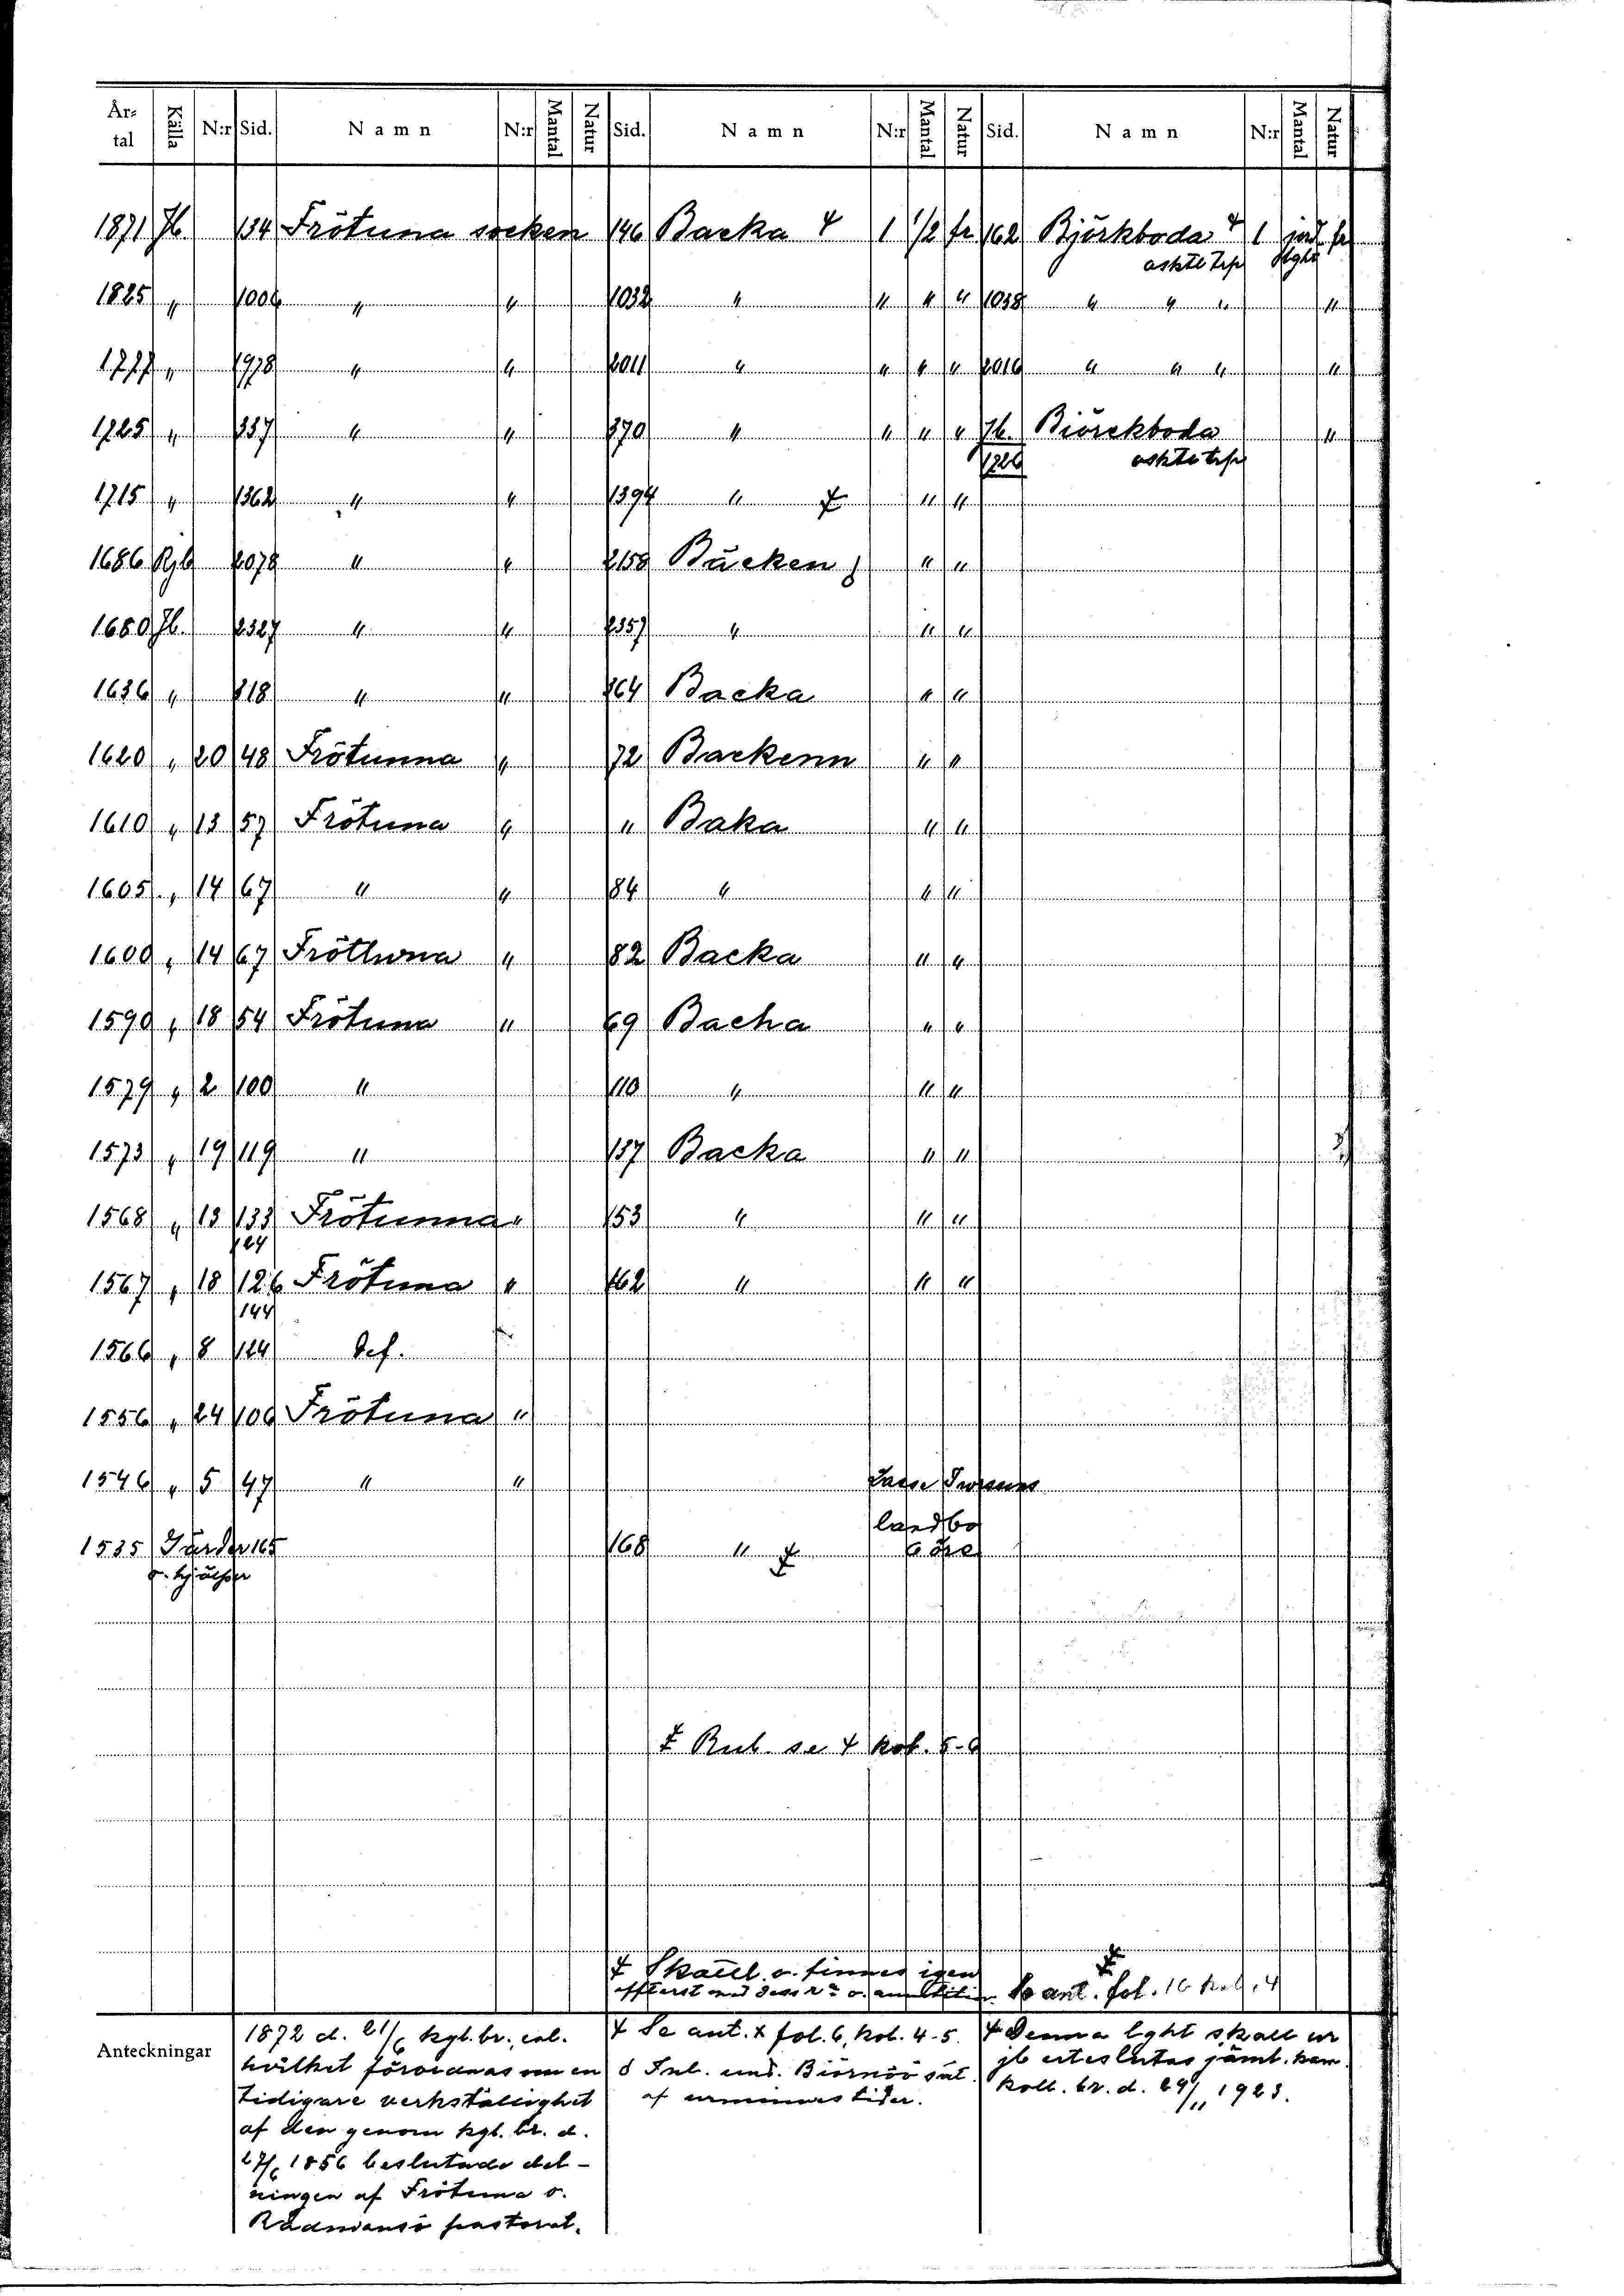 År-tal Källa N:r Sid. Namn N:r Mantal Natur Sid. Namn N:r Mantal Natur Sid. Namn N:r Mantal Natur
1871 Jb. 134 Frötuna socken 146 Backa 1 1/2 fr 162 Björkboda 1 jord fr
1825 " 1006 " " 1032 " " " " 1038 " " " "
1777 " 1978 " " 2011 " " " " 2016 " " " "
1725 " 837 " " 870 " " " " Jb. Biörckboda "
1726
1715 " 1362 " " 1394 " " "
1686 Rjb 2078 " " 2158 Bäcken " "
1680 Jb. 2327 " " 2357 " " "
1636 " 818 " " 864 Backa " "
1620 " 20 48 Frötunna " 72 Backenn " "
1610 " 13 57 Frötuna " " Baka " "
1605 " 14 67 " " 84 " " "
1600 " 14 67 Fröthuna " 82 Backa " "
1590 " 18 54 Frötuna " 69 Bacha " "
1579 " 2 100 " 110 " " "
1573 " 19 119 " 137 Backa " "
1568 " 13 133 Frötunna " 153 " " "
124
1567 " 18 126 Frötuna " 162 " " "
144
1566 " 8 124 Def.
1556 " 24 106 Frötuna "
1546 " 5 47 " " Lasse
landbo
1535 165 168 " 6 öre
Rub. se kol. 5-6
Skattl. o. finnes igen
Se ant. fol. 16 kol. 4
Anteckningar
1872 d. 21/6 kgl. br., enl.
hvilket förordnas om en
tidigare verkställighet
af den genom kgl. br. d.
27/6 1856 beslutade del-
ningen af Frötuna o.
Rådmansö pastorat.
Se ant. x fol. 6, kol. 4-5.
Inl. und. Biörnöö sät.
af urminnes tider.
Denna lght skall ur
jb uteslutas jämt. kam.
koll. br. d. 29/11 1923.